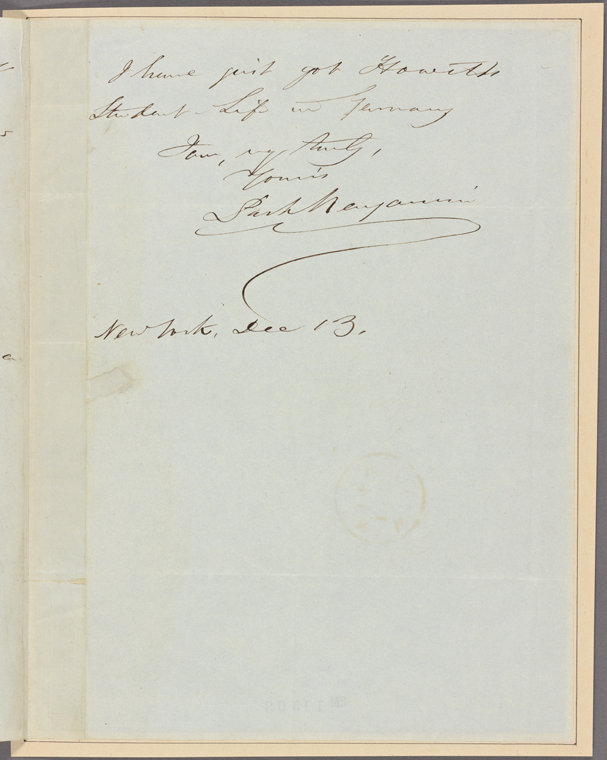 I have just got Howitt's
Student-Life in Germany
I am, very truly,
Yours
Park Benjamin
New York, Dec 13.